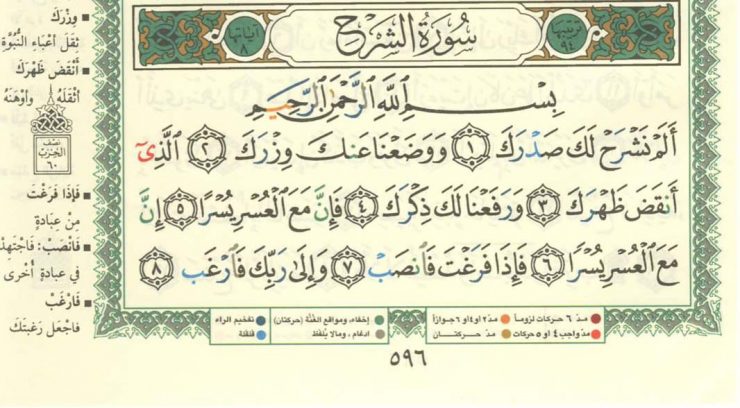 ترتيبها ٩٤
سُورَةُ الشَّرْحِ
آياتها ٨
بِسْمِ ٱللَّهِ ٱلرَّحْمَٰنِ ٱلرَّحِيمِ
أَلَمْ نَشْرَحْ لَكَ صَدْرَكَ ١ وَوَضَعْنَا عَنكَ وِزْرَكَ ٢ ٱلَّذِىٓ
أَنقَضَ ظَهْرَكَ ٣ وَرَفَعْنَا لَكَ ذِكْرَكَ ٤ فَإِنَّ مَعَ ٱلْعُسْرِ يُسْرًا ٥ إِنَّ
مَعَ ٱلْعُسْرِ يُسْرًا ٦ فَإِذَا فَرَغْتَ فَٱنصَبْ ٧ وَإِلَىٰ رَبِّكَ فَٱرْغَب ٨
■ وِزْرَكَ
ثِقَلَ أعْباءِ النُّبُوَّة
■ أَنْقَضَ ظَهْرَكَ
أثْقَلَهُ وأوْهَنَهُ
نصف
الحزب
٦٠
■ فَإذا فَرَغْتَ
مِنْ عِبَادَةٍ
■ فَانْصَبْ: فَاجْتَهِدْ
في عبادةٍ أُخْرى
■ فَارْغَبْ
فاجْعل رَغبتَكَ
● مدّ ٦ حركات لزوماً ● مدّ ٢ او ٤ او ٦ جوازاً
● مدّ واجب ٤ او ٥ حركات ● مدّ حركتــان
● إخفاء، ومواقع الغُنَّة (حركتان)
● ادغام، ومالا يُلفَظ
● تفخيم الراء
● قلقلة
٥٩٦